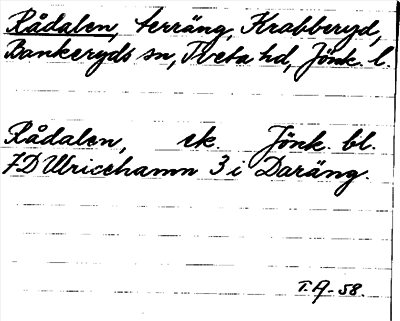 Rådalen, terräng, Krabberyd,
Bankeryds sn, Tveta hd, Jönk. l.
Rådalen, ek. Jönk. bl.
7D Ulricehamn 3 i Daräng.
T.A-58.